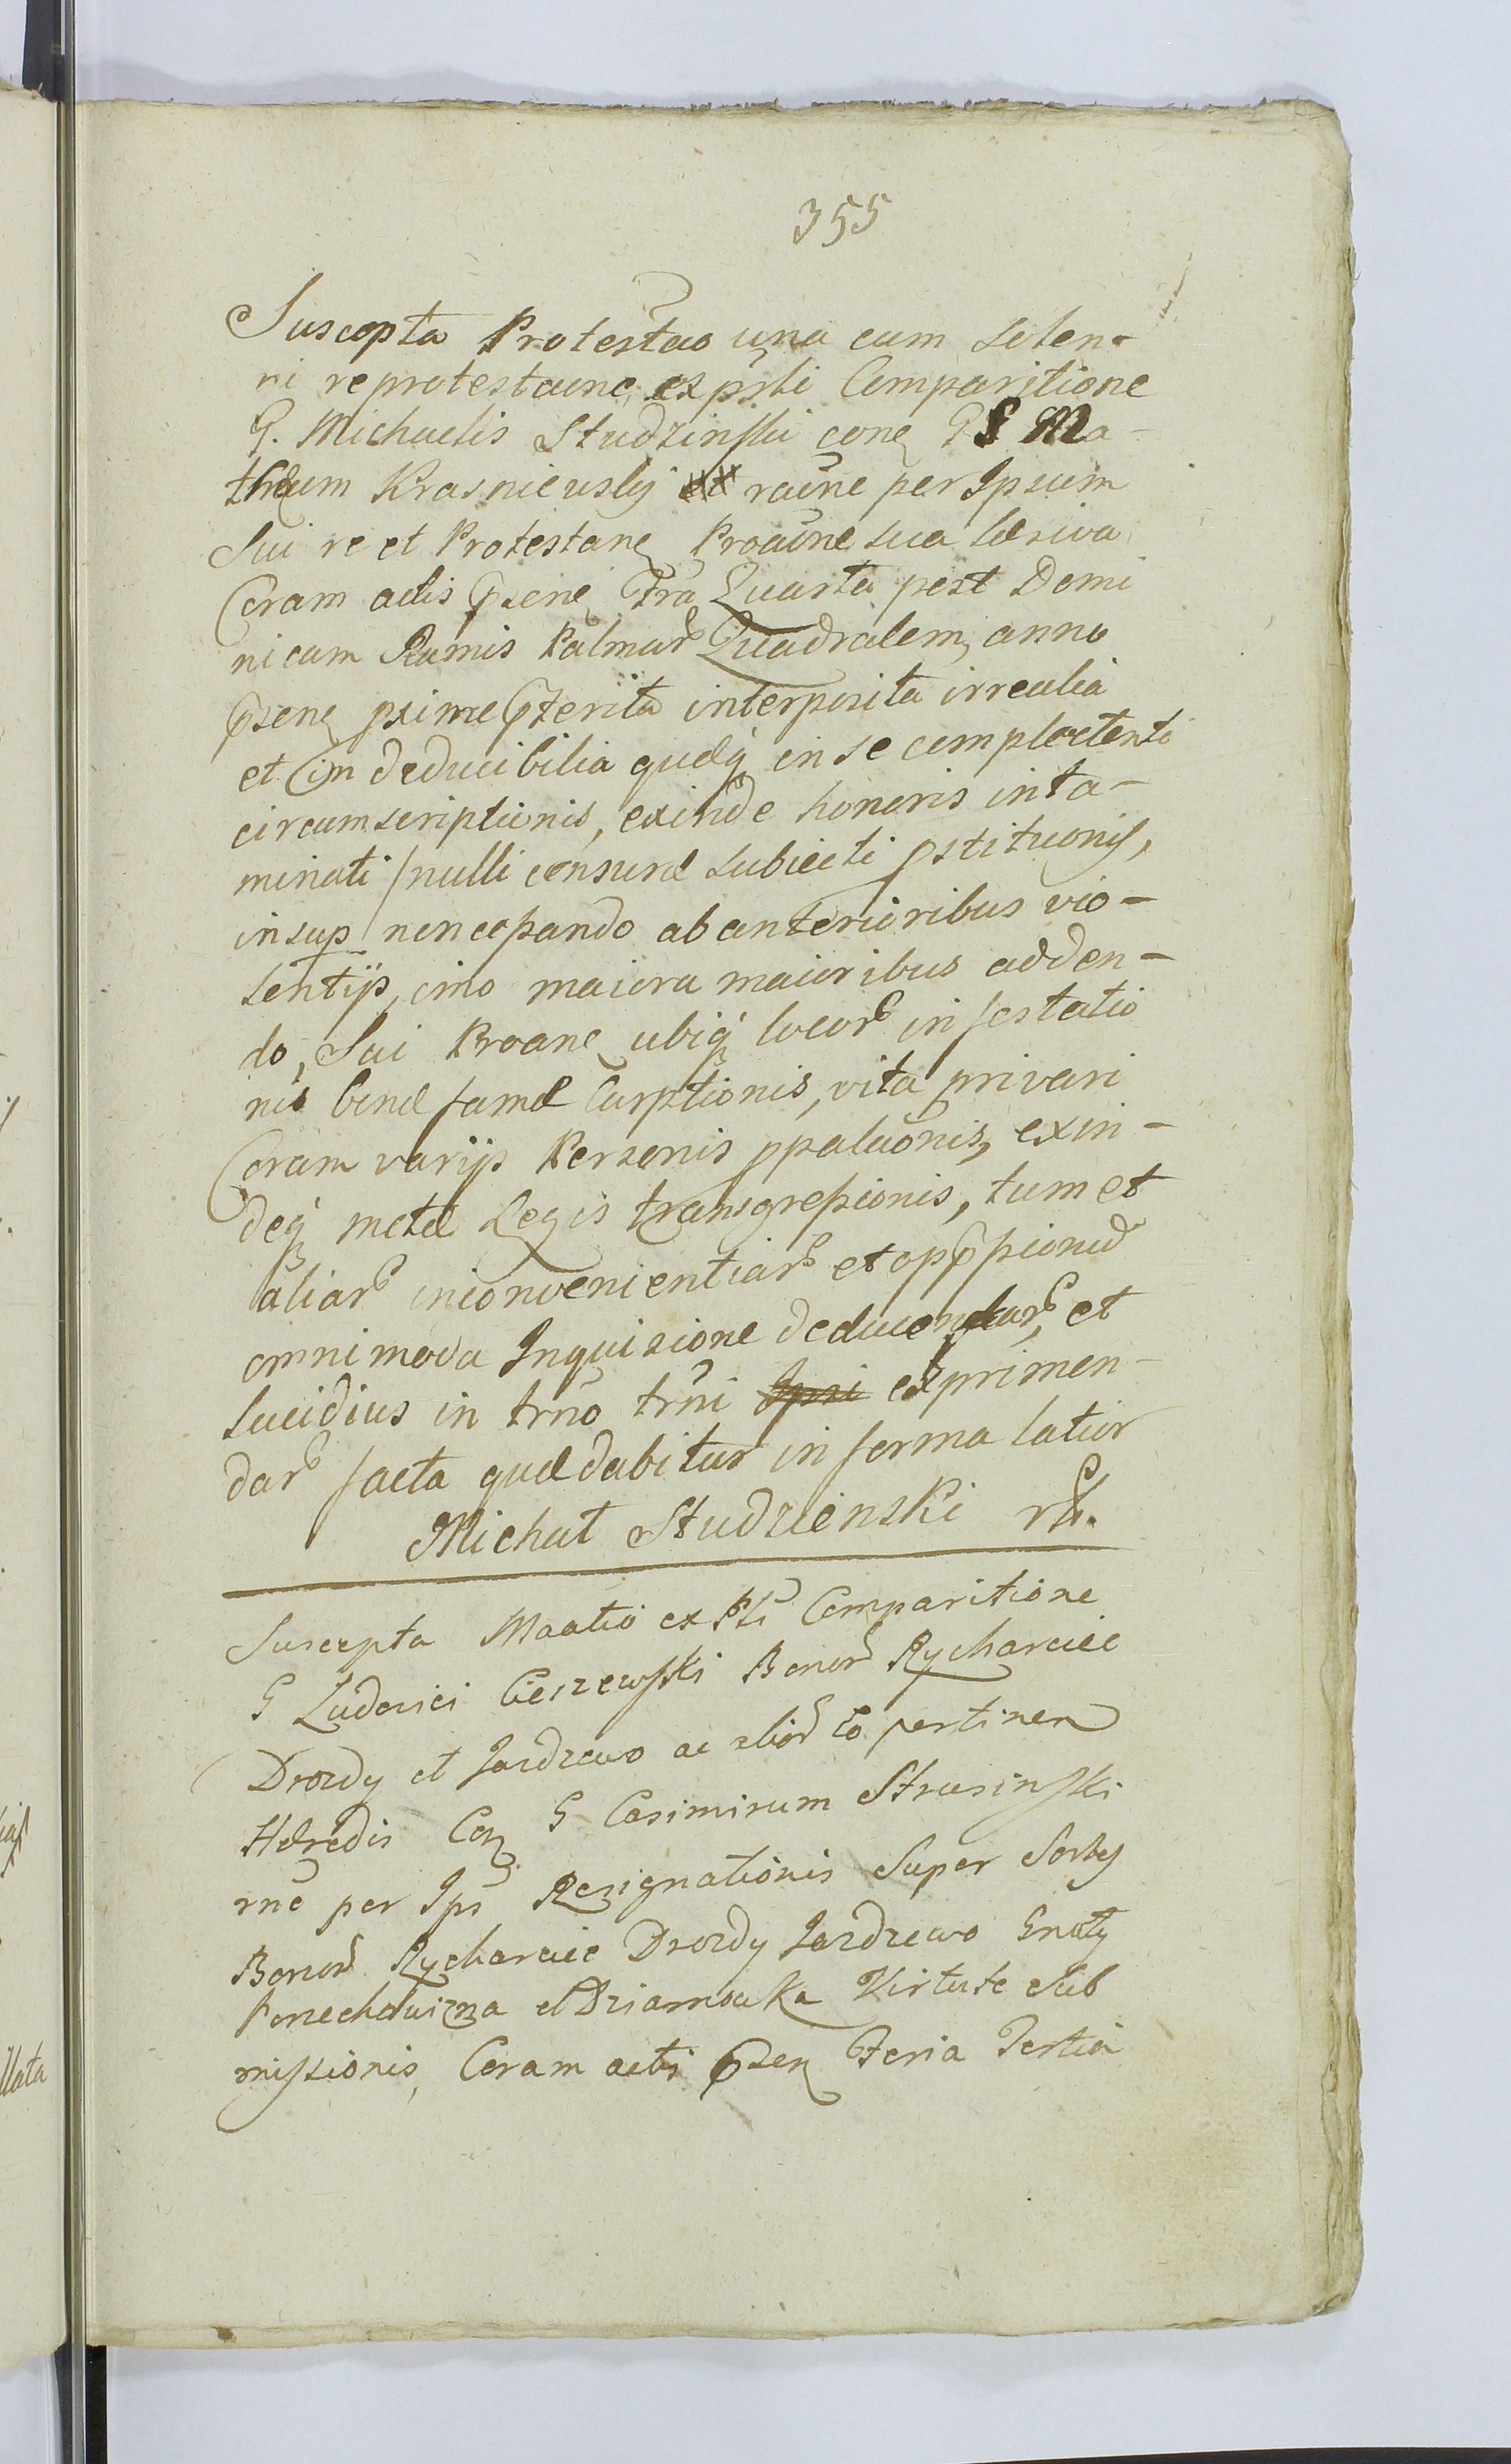 355
Suscepta Protestao una cum Solen-
ni reprotestaone ex psti Comparitione
G. Michaelis Studzinski cone G Ma-
theum Krasniewsky raone per Ipsum
Sui re et Protestane Proaone sua lesiva
Coram actis psene Fra Quarta post Domi
nicam Ramis Palmar Quadralem, anno
psene prime pterita interposita irrealia
et in deducibilia quæq in se complectenti
circumscriptionis, exinde honoris inta-
minati /nulli censuræ subiecti pstitutionis,
insup noncessando ab anterioribus vio-
lentijs, imo maiora maioribus adden-
do, Sui Proane ubiq locor infestatio
nis bonæ famæ Carptionis, vita privari
Coram varijs Personis ppalaonis, exin-
deq metæ Legis transgressionis, tum et
aliar inconvenientiar et oppssionu
omnimoda Inquisione deducendar, et
lucidius in trno trni exprimen-
dar facta quæ dabitur in forma latior
Michał Studzienski
Suscepta Maatio ex Psti Comparitione
G Ludovici Cieszewski Bonor Rycharcice
Drozdy et Jazdrewo ac alior eo pertinen
Hæredis Con G Casimirum Strusinski
rne per Ips Resignationis Super Sortes
Bonor Rycharcice Drozdy Jazdrewo
et Dziamouka Virtute Sub
missionis, Coram actis psen Feria Tertia
llata